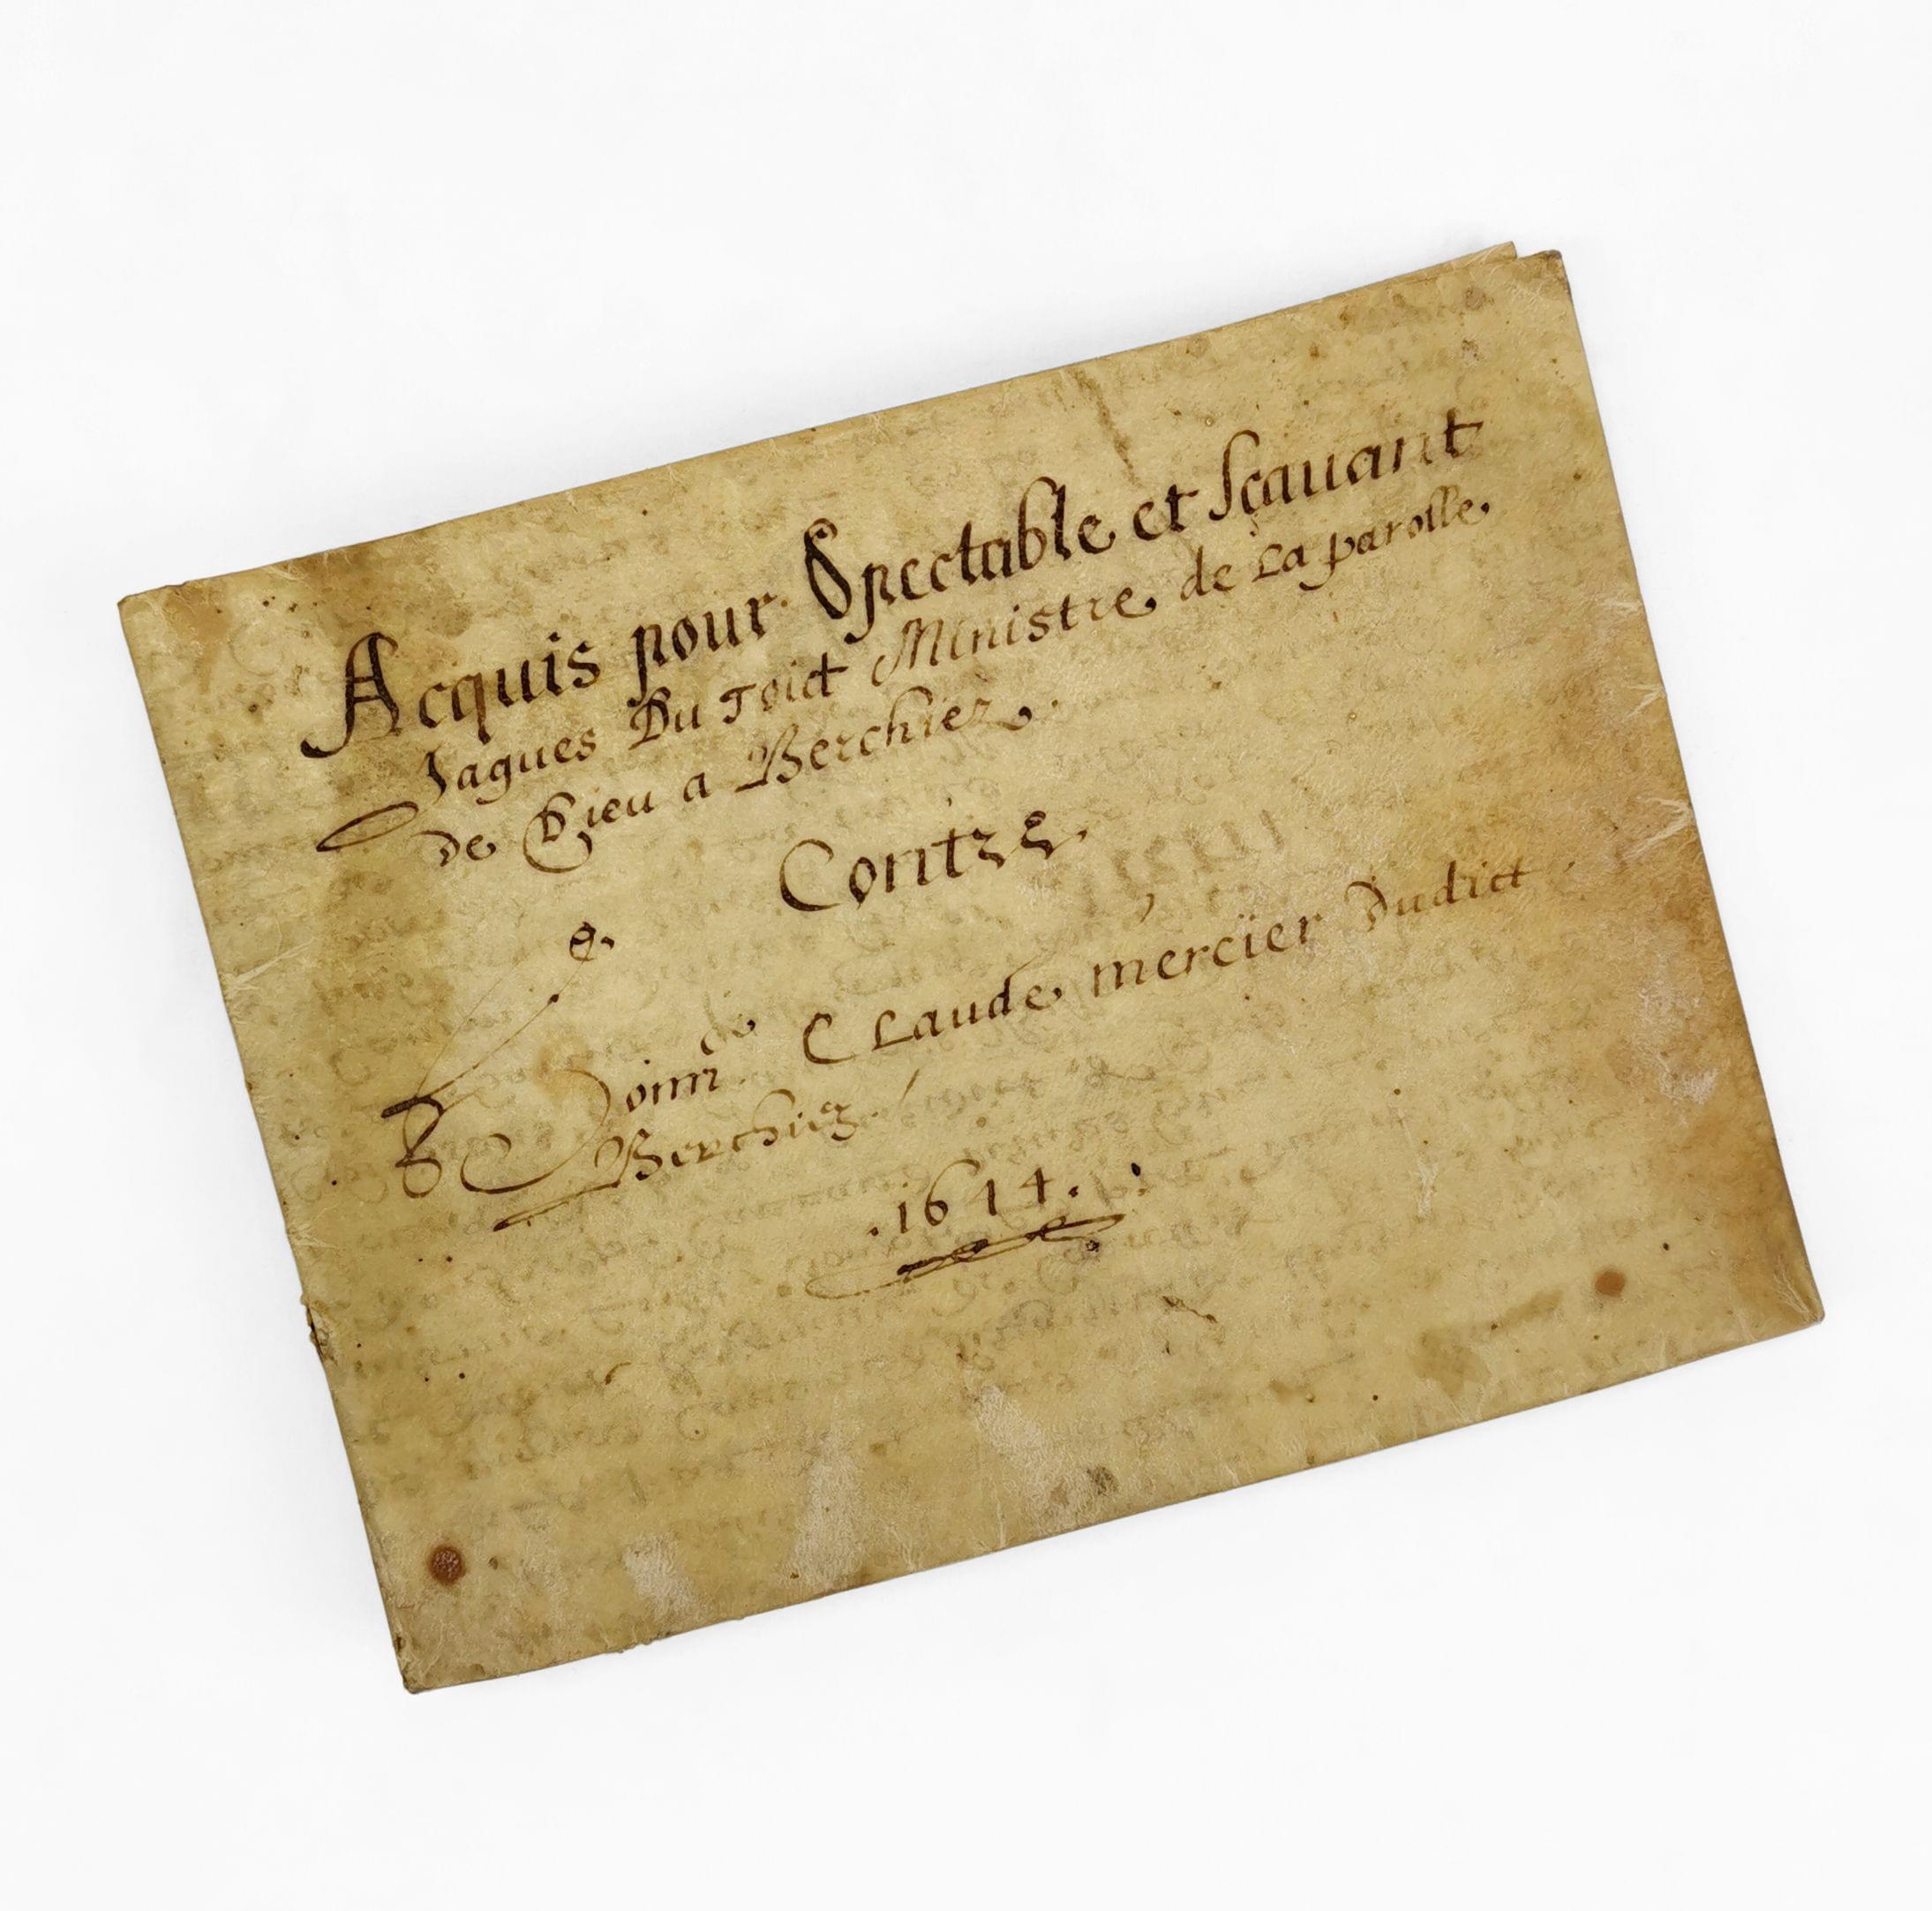 Acquis pour Spectable et Scauant
Jaques Du Toict Ministre de La parolle
de Dieu a Berchiez.
Contre
Claude mercier Dudict
Berchiez
.1644.